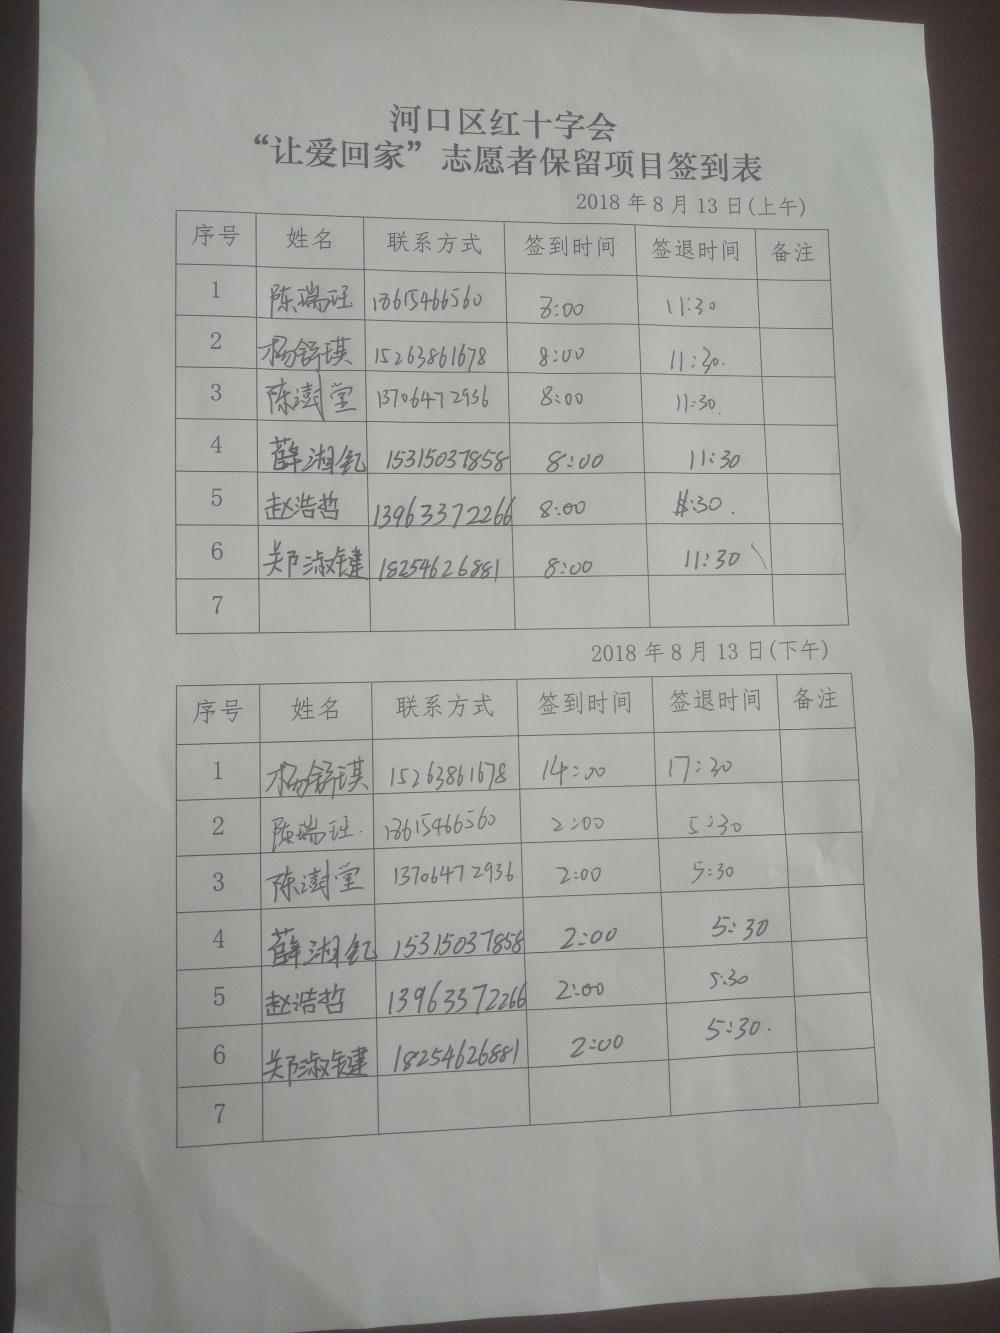 河口区红十字会
“让爱回家”志愿者保留项目签到表
2018年8月13日(上午)
序号 姓名 联系方式 签到时间 签退时间 备注
1 陈瑞珏 13615466560 8:00 11:30
2 杨舒琪 15263861678 8:00 11:30.
3 陈澍堂 13706472936 8:00 11:30.
4 薛湘钇 15315037858 8:00 11:30
5 赵浩哲 13963372266 8:00 :30.
6 郑淑键 18254626881 8:00 11:30
7
2018年8月13日(下午)
序号 姓名 联系方式 签到时间 签退时间 备注
1 杨舒琪 15263861678 14:00 17:30
2 陈瑞珏. 13615466560 2:00 5:30
3 陈澍堂 13706472936 2:00 5:30
4 薛湘钇 15315037858 2:00 5:30
5 赵浩哲 13963372266 2:00 5:30
6 郑淑键 18254626881 2:00 5:30.
7